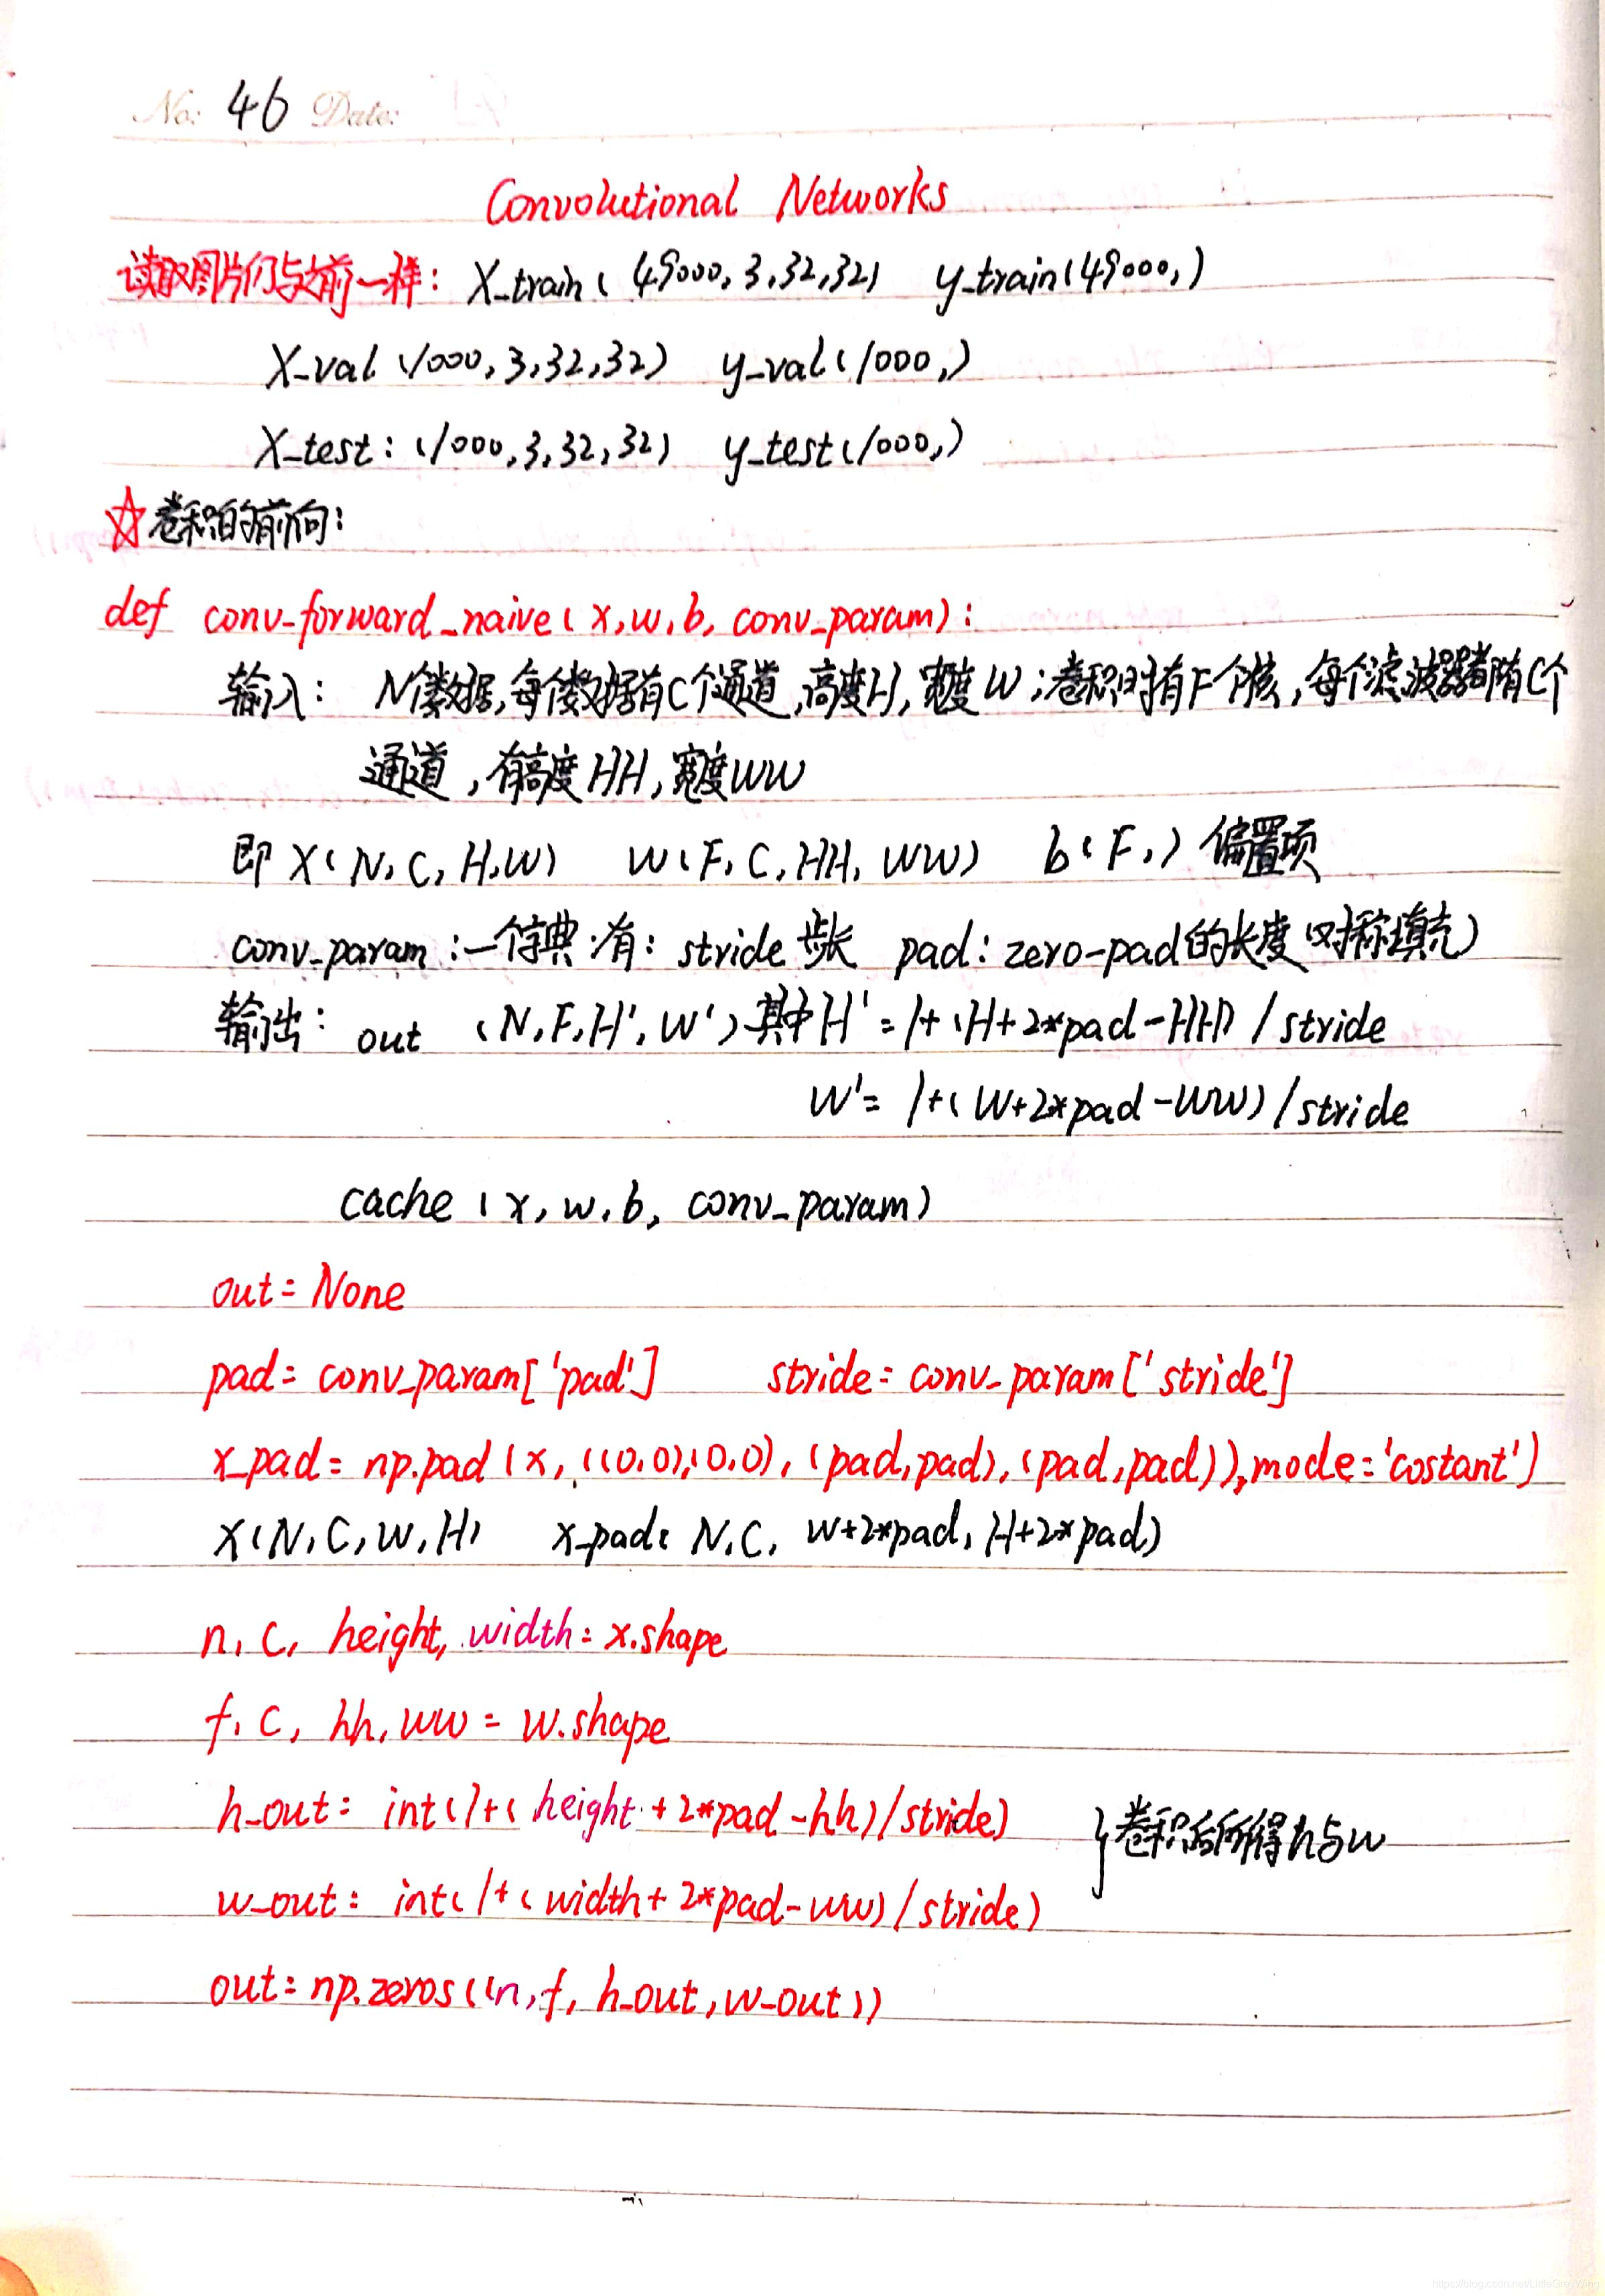 No: 46 Date:
Convolutional Networks
读取图片们与之前一样: X_train(49000,3,32,32) y_train(49000,)
X_val(1000,3,32,32) y_val(1000,)
X_test:(1000,3,32,32) y_test(1000,)
☆卷积的前向:
def conv-forward_naive(x,w,b, conv_param):
输入: N个数据,每个数据有C个通道,高度H,宽度W;卷积时有F个核,每个滤波器都有C个
通道,有高度HH,宽度WW
即 X(N,C,H,W) W(F,C,HH,WW) b(F,) 偏置项
conv_param:一个字典:有: stride 步长 pad: zero-pad的长度(对称填充)
输出: out (N,F,H',W')其中H'=1+(H+2*pad-HH)/stride
W'=1+(W+2*pad-WW)/stride
cache (x,w,b, conv_param)
out=None
pad=conv_param['pad'] stride=conv_param['stride']
x_pad=np.pad(x,((0,0),(0,0),(pad,pad),(pad,pad)),mode='costant')
X(N,C,W,H) x_pad( N,C, W+2*pad, H+2*pad)
n, c, height, width=x.shape
f, c, hh, ww=w.shape
h_out= int(1+( height+2*pad-hh)/stride)
}卷积后所得h与w
w_out= int(1+( width+2*pad-ww)/stride)
out=np.zeros((n,f, h_out,w_out))
https://blog.csdn.net/LittleGreyWing